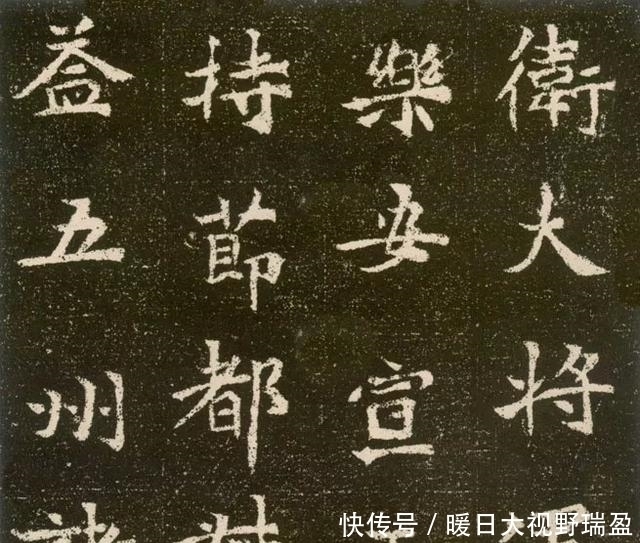 衛大将
樂安宣
持莭都
益五州
快传号 / 暖日大视野瑞盈